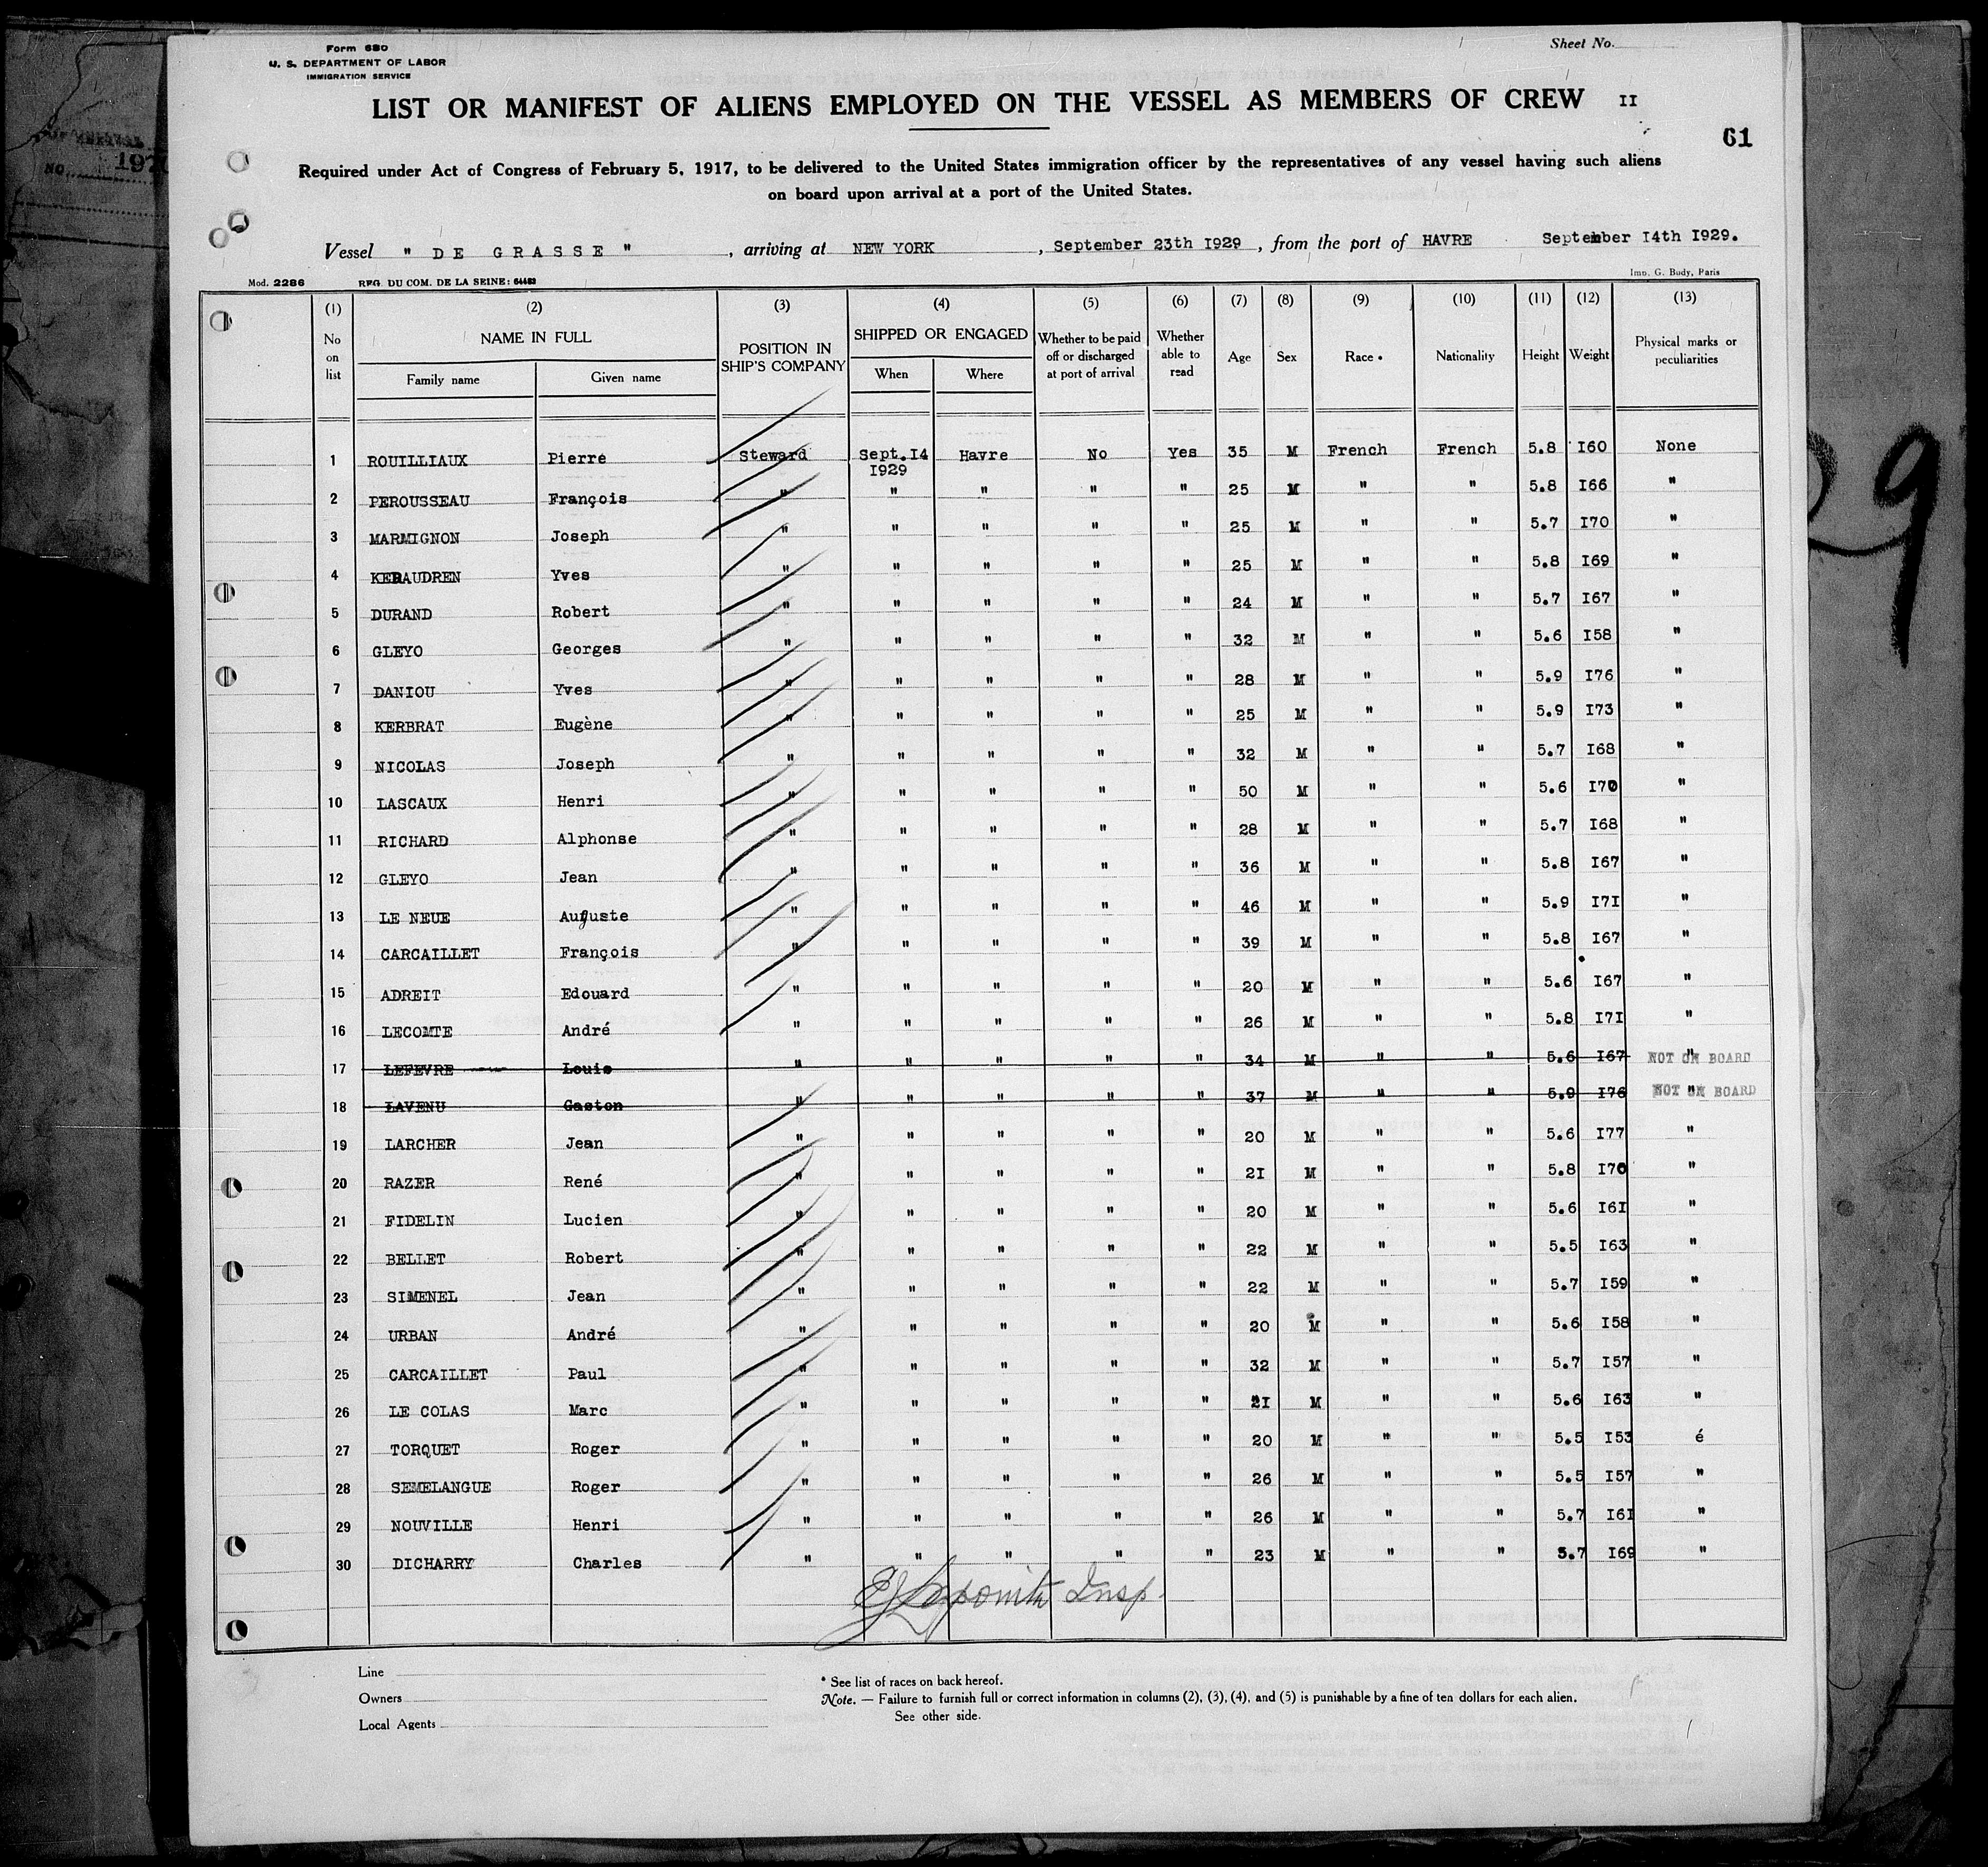 Form 680
U. S. DEPARTMENT OF LABOR
IMMIGRATION SERVICE
Sheet No.
LIST OR MANIFEST OF ALIENS EMPLOYED ON THE VESSEL AS MEMBERS OF CREW II
61
Required under Act of Congress of February 5, 1917, to be delivered to the United States immigration officer by the representatives of any vessel having such aliens
on board upon arrival at a port of the United States.
Vessel " DE GRASSE " , arriving at NEW YORK , September 23th I929 , from the port of HAVRE September I4th I929.
Mod. 2286 REG. DU COM. DE LA SEINE: 64483 Imp. G. Budy, Paris
(1) (2) (3) (4) (5) (6) (7) (8) (9) (10) (11) (12) (13)
No on list NAME IN FULL Family name Given name POSITION IN SHIP'S COMPANY SHIPPED OR ENGAGED When Where Whether to be paid off or discharged at port of arrival Whether able to read Age Sex Race * Nationality Height Weight Physical marks or peculiarities
1 ROUILLIAUX Pierre Steward Sept.I4 I929 Havre No Yes 35 M French French 5.8 I60 None
2 PEROUSSEAU François " " " " " 25 M " " 5.8 I66 "
3 MARMIGNON Joseph " " " " " 25 M " " 5.7 I70 "
4 KERAUDREN Yves " " " " " 25 M " " 5.8 I69 "
5 DURAND Robert " " " " " 24 M " " 5.7 I67 "
6 GLEYO Georges " " " " " 32 M " " 5.6 I58 "
7 DANIOU Yves " " " " " 28 M " " 5.9 I76 "
8 KERBRAT Eugène " " " " " 25 M " " 5.9 I73 "
9 NICOLAS Joseph " " " " " 32 M " " 5.7 I68 "
10 LASCAUX Henri " " " " " 50 M " " 5.6 I70 "
11 RICHARD Alphonse " " " " " 28 M " " 5.7 I68 "
12 GLEYO Jean " " " " " 36 M " " 5.8 I67 "
13 LE NEUE Auguste " " " " " 46 M " " 5.9 I7I "
14 CARCAILLET François " " " " " 39 M " " 5.8 I67 "
15 ADREIT Edouard " " " " " 20 M " " 5.6 I67 "
16 LECOMTE André " " " " " 26 M " " 5.8 I7I "
17 LEFEVRE Louis " " " " " 34 M " " 5.6 I67 " NOT ON BOARD
18 LAVENU Gaston " " " " " 37 M " " 5.9 I76 " NOT ON BOARD
19 LARCHER Jean " " " " " 20 M " " 5.6 I77 "
20 RAZER René " " " " " 2I M " " 5.8 I70 "
21 FIDELIN Lucien " " " " " 20 M " " 5.6 I6I "
22 BELLET Robert " " " " " 22 M " " 5.5 I63 "
23 SIMENEL Jean " " " " " 22 M " " 5.7 I59 "
24 URBAN André " " " " " 20 M " " 5.6 I58 "
25 CARCAILLET Paul " " " " " 32 M " " 5.7 I57 "
26 LE COLAS Marc " " " " " 2I M " " 5.6 I63 "
27 TORQUET Roger " " " " " 20 M " " 5.5 I53 é
28 SEMELANGUE Roger " " " " " 26 M " " 5.5 I57 "
29 NOUVILLE Henri " " " " " 26 M " " 5.7 I6I "
30 DICHARRY Charles " " " " " 23 M " " 5.7 I69 "
Insp.
Line
Owners
Local Agents
* See list of races on back hereof.
Note. — Failure to furnish full or correct information in columns (2), (3), (4), and (5) is punishable by a fine of ten dollars for each alien.
See other side.
NO.
9